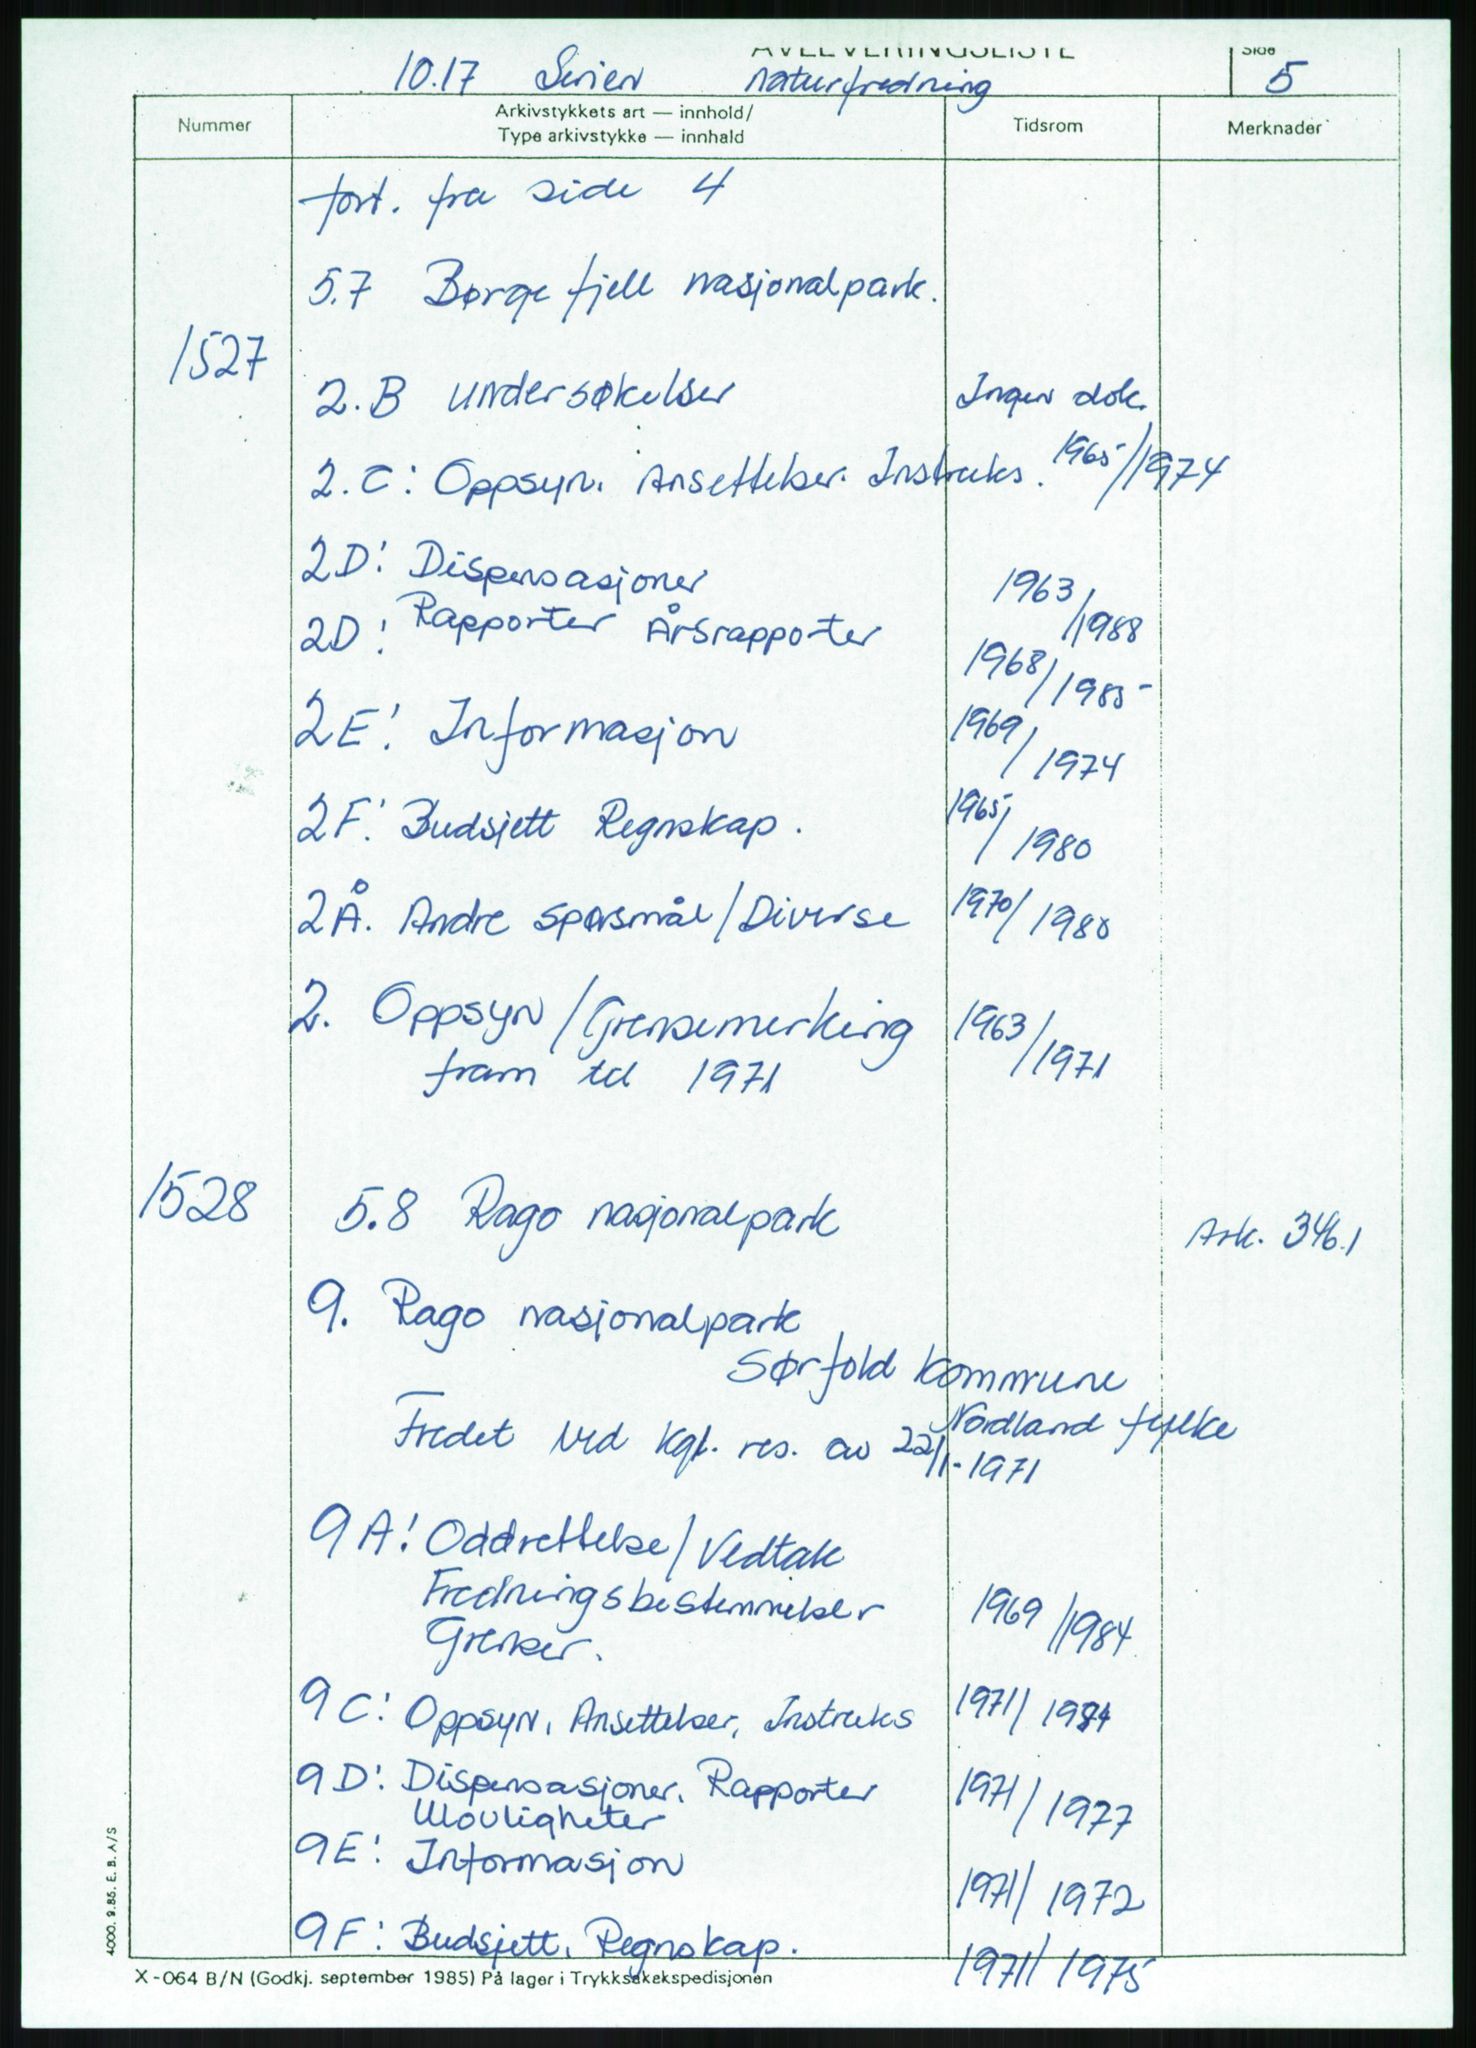 AVLEVERINGSLISTE Side
10.17 Serien Naturfredning 5
Nummer Arkivstykkets art — innhold/ Tidsrom Merknader
Type arkivstykke — innhald
fort. fra side 4
5.7 Børgefjell nasjonalpark.
1527
2.B undersøkelser Ingen dok.
2.C: Oppsyn. Ansettelser. Instruks. 1965/1974
2D: Dispensasjoner 1963/1988
2D: Rapporter Årsrapporter 1968/1985
2E: Informasjon 1969/1974
2F: Budsjett Regnskap. 1965/1980
2Å. Andre spørsmål/Diverse 1970/1980
2. Oppsyn/Grensemerking 1963/1971
fram til 1971
1528 5.8 Rago nasjonalpark Ark. 346.1
9. Rago nasjonalpark
Sørfold kommune
Nordland fylke
Fredet ved kgl. res. av 22/1-1971
9A: Oddrettelse/Vedtak
Fredningsbestemmelser 1969/1984
Grenser.
9C: Oppsyn, Ansettelser, Instruks 1971/1984
9D: Dispensasjoner. Rapporter 1971/1977
Ulovligheter
9E: Informasjon 1971/1972
9F: Budsjett. Regnskap. 1971/1975
X-064 B/N (Godkj. september 1985) På lager i Trykksakekspedisjonen
4000. 9.85. E. B. A/S